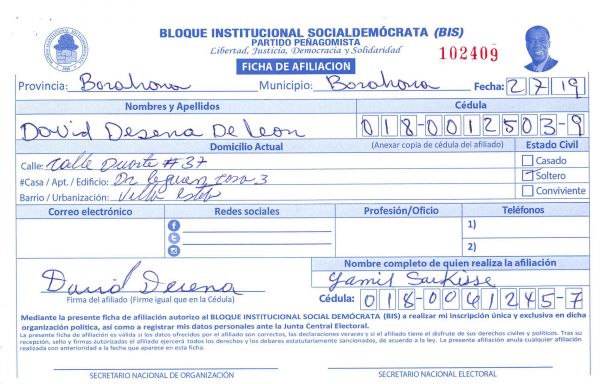 BLOQUE INSTITUCIONAL SOCIALDEMÓCRATA (BIS)
PARTIDO PEÑAGOMISTA
Libertad, Justicia, Democracia y Solidaridad
102409
FICHA DE AFILIACION
Provincia: Barahona Municipio: Barahona Fecha: 2 7 19
Nombres y Apellidos Cédula
David Desena De Leon 018-0012503-9
Domicilio Actual (Anexar copia de cédula del afiliado) Estado Civil
Calle: Calle Duarte #37 Casado
#Casa / Apt. / Edificio: casa 3 Soltero
Barrio / Urbanización: Villa Conviviente
Correo electrónico Redes sociales Profesión/Oficio Teléfonos
1)
2)
Nombre completo de quien realiza la afiliación
David Desena Yamil
Firma del afiliado (Firme igual que en la Cédula) Cédula: 018-0061245-7
Mediante la presente ficha de afiliación autorizo al BLOQUE INSTITUCIONAL SOCIAL DEMÓCRATA (BIS) a realizar mi inscripción única y exclusiva en dicha
organización política, así como a registrar mis datos personales ante la Junta Central Electoral.
La presente ficha es válida si los datos ofrecidos por el afiliado son correctos, las declaraciones veraces y si el afiliado tiene el disfrute de sus derechos civiles y políticos. Tras su
recepción, sello y firmas autorizadas el afiliado ejercerá todos los derechos y los deberes estatutariamente sancionados, de acuerdo a la ley. La presente afiliación anula cualquier afiliación
realizada con anterioridad a la fecha que aparece en esta ficha.
SECRETARIO NACIONAL DE ORGANIZACIÓN SECRETARIO NACIONAL ELECTORAL